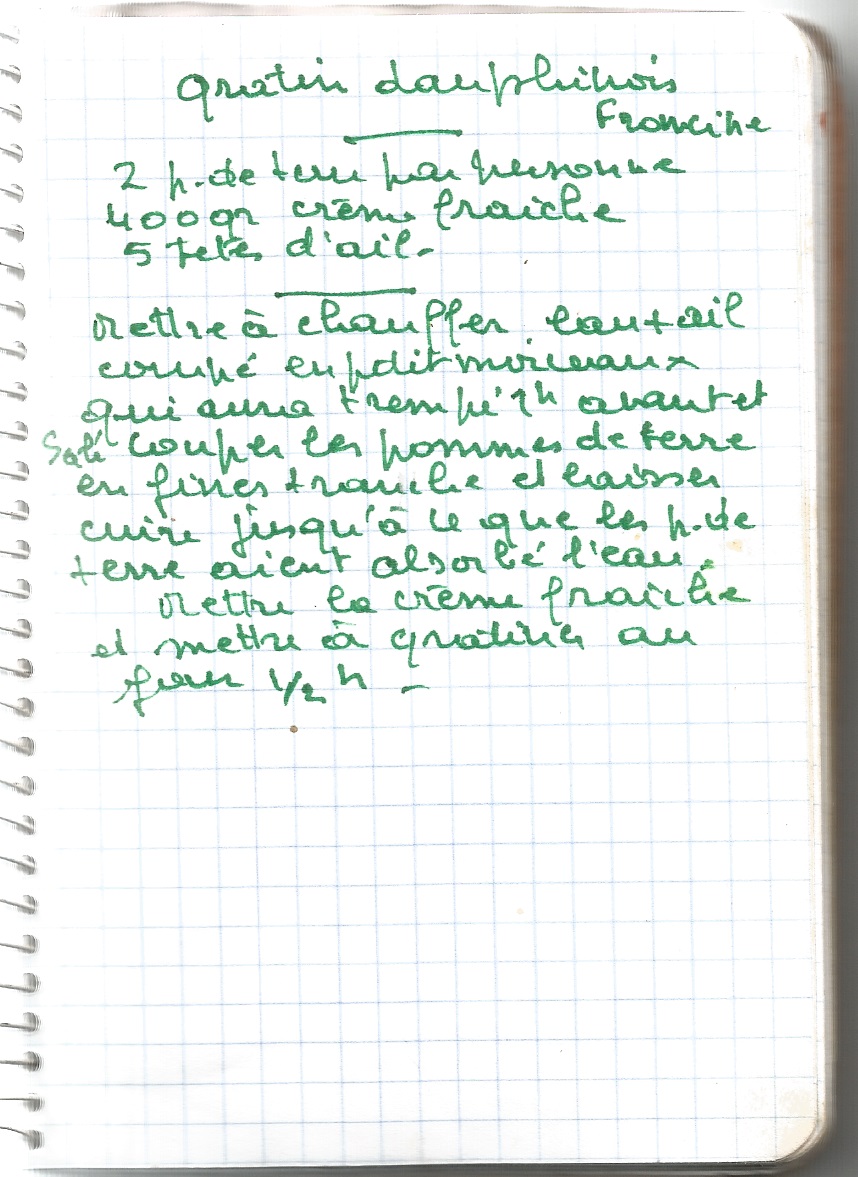 gratin dauphinois
Francine
2 p. de terre par personne
400gr crème fraiche
5 têtes d'ail -
Mettre à chauffer eau + ail
coupé en petit morceaux
qui aura trempé 1h avant et
Salé couper les pommes de terre
en fines tranche et laisser
cuire jusqu'à ce que les p. de
terre aient absorbé l'eau.
Mettre la crème fraiche
et mettre à gratiner au
four 1/2 h -